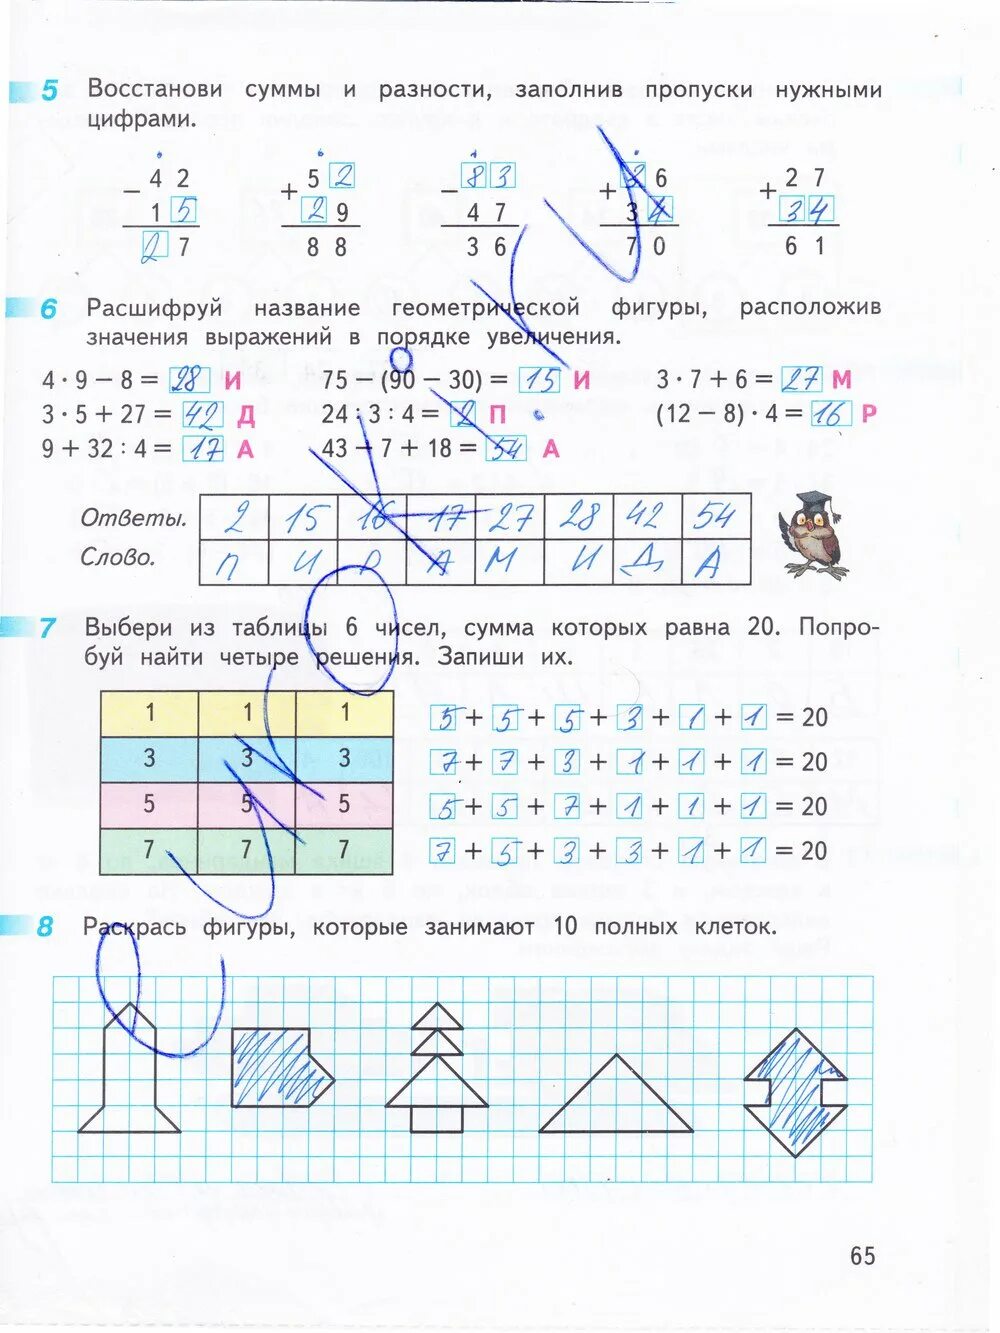 5 Восстанови суммы и разности, заполнив пропуски нужными
цифрами.
− 4 2 + 5 2 − 8 3 + 3 6 + 2 7
1 5 2 9 4 7 3 4 3 4
2 7 8 8 3 6 7 0 6 1
6 Расшифруй название геометрической фигуры, расположив
значения выражений в порядке увеличения.
4 · 9 − 8 = 28 И 75 − (90 − 30) = 15 И 3 · 7 + 6 = 27 М
3 · 5 + 27 = 42 Д 24 : 3 : 4 = 2 П (12 − 8) · 4 = 16 Р
9 + 32 : 4 = 17 А 43 − 7 + 18 = 54 А
Ответы. 2 15 16 17 27 28 42 54
Слово. П И Р А М И Д А
7 Выбери из таблицы 6 чисел, сумма которых равна 20. Попро-
буй найти четыре решения. Запиши их.
1 1 1 5 + 5 + 5 + 3 + 1 + 1 = 20
3 3 3 7 + 7 + 3 + 1 + 1 + 1 = 20
5 5 5 5 + 5 + 7 + 1 + 1 + 1 = 20
7 7 7 7 + 5 + 3 + 3 + 1 + 1 = 20
8 Раскрась фигуры, которые занимают 10 полных клеток.
65